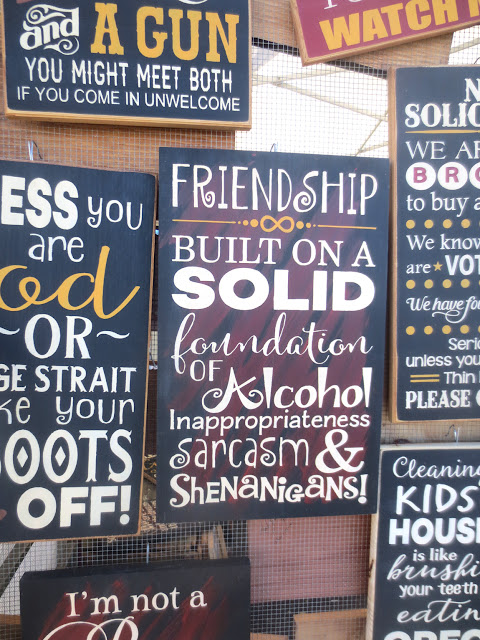 and A GUN
YOU MIGHT MEET BOTH
IF YOU COME IN UNWELCOME
WATCH
ESS you
are
od
~OR~
GE STRAIT
ke your
BOOTS
OFF!
FRIENDSHIP
BUILT ON A
SOLID
foundation
OF Alcohol
Inappropriateness
sarcasm &
SHENANIGANS!
N
SOLIC
WE AR
BRO
to buy a
We know
are ★ VOT
We have fo
Serio
unless you
Thin
PLEASE
Cleaning
KIDS
HOUSE
is like
brushing
your teeth
eating
OREO
I'm not a